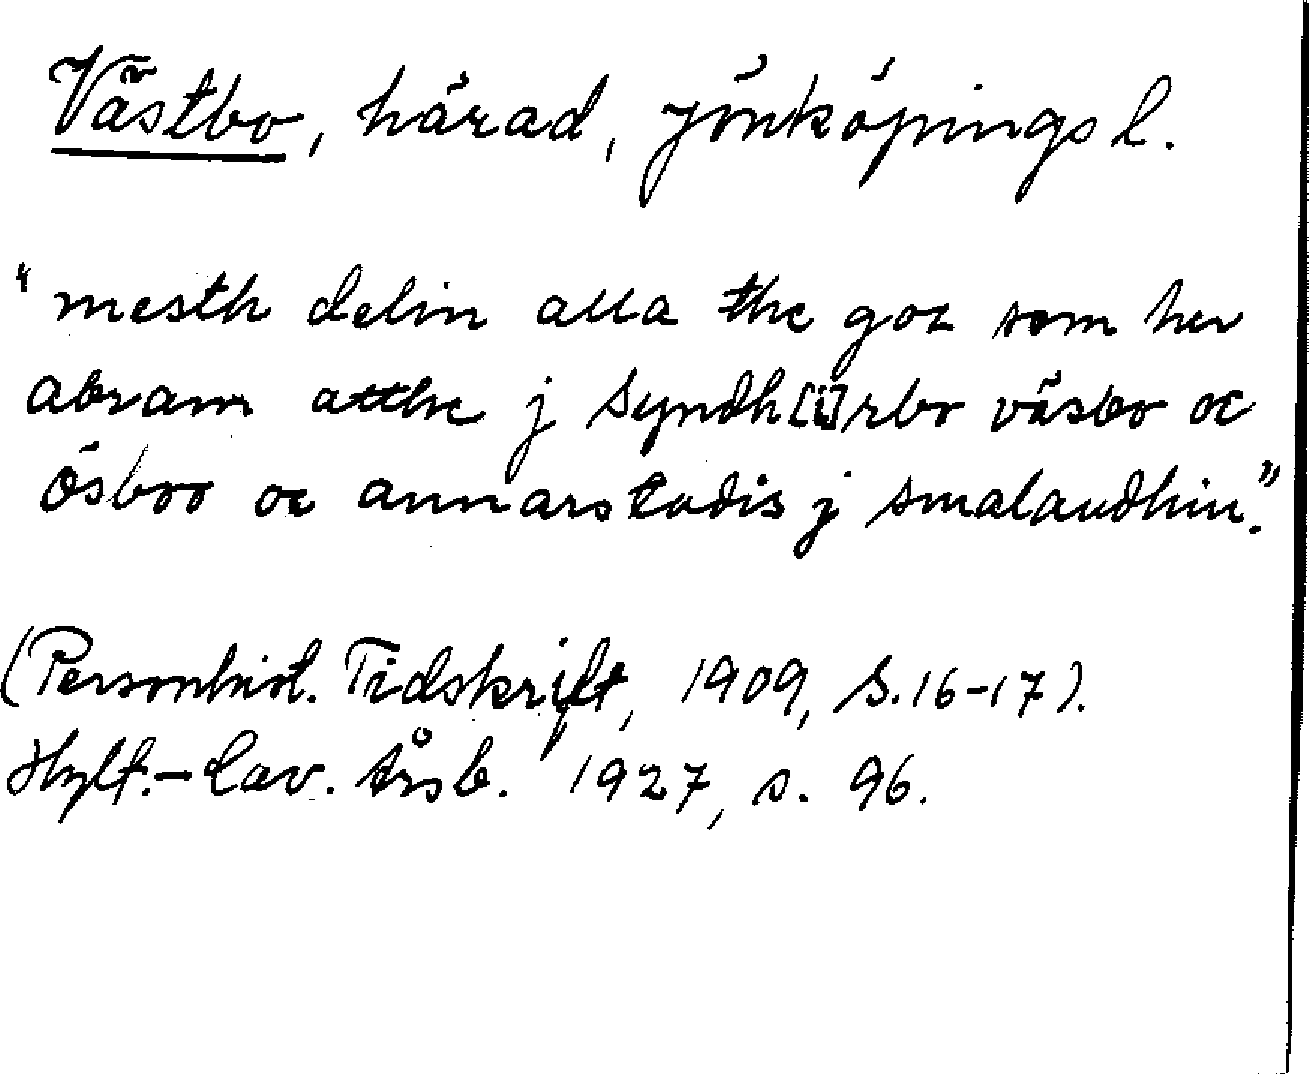 Västbo, härad, Jönköpings l.
"mesth delin alla the goz som her
abram atthe j Syndh[i]rbo väsbo oc
ösboo oc annarstadis j smalandhin."
(Personhist. Tidskrift, 1909, S. 16-17).
Hylt.-Cav. årsb. 1927, s. 96.